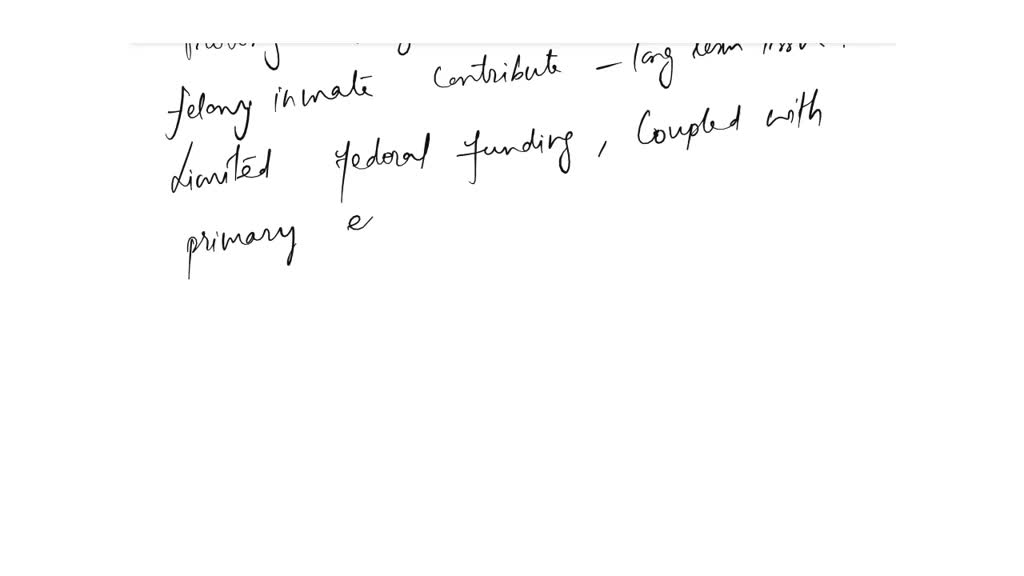 felony inmate contribute - long term
Limited federal funding, Coupled with
primary e